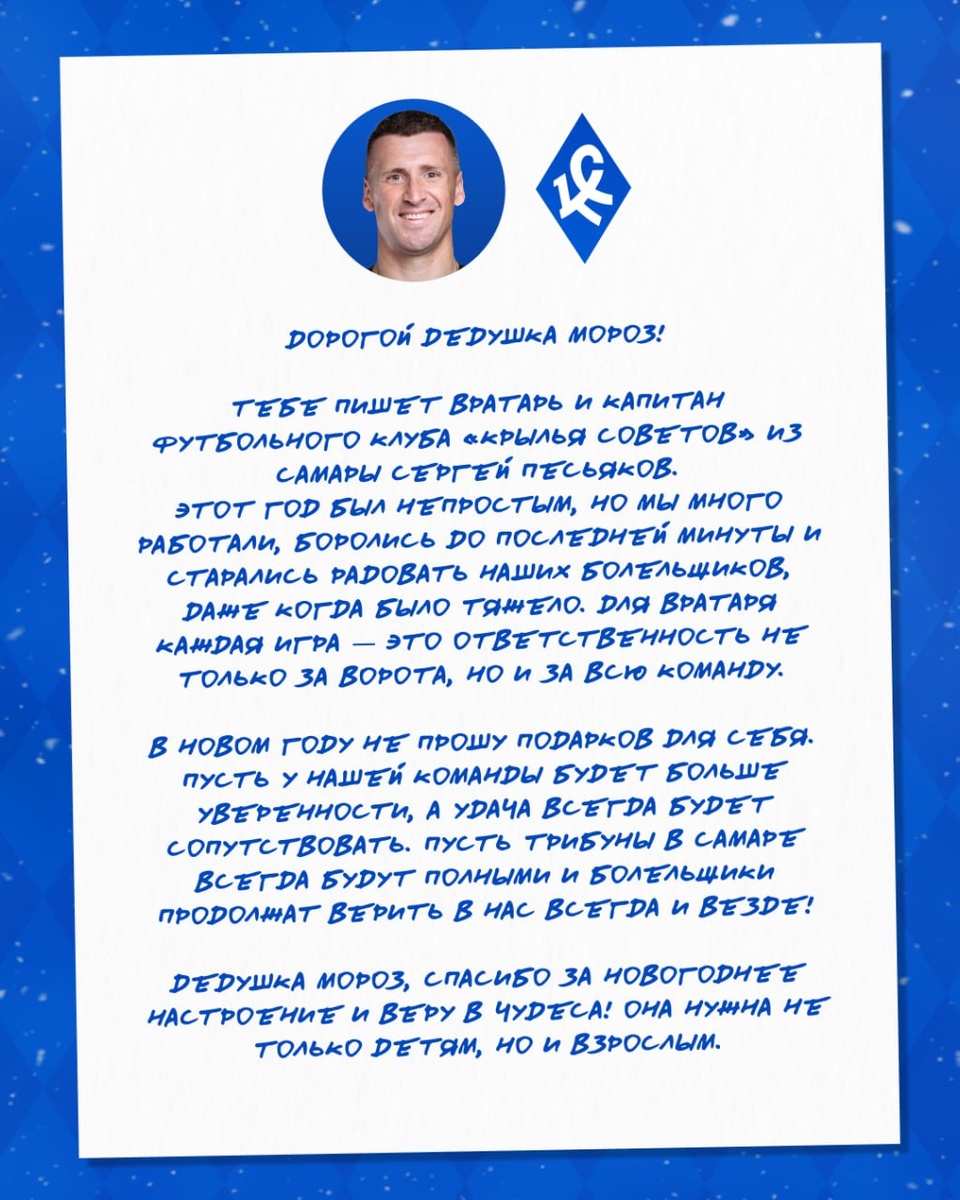 КС
ДОРОГОЙ ДЕДУШКА МОРОЗ!
ТЕБЕ ПИШЕТ ВРАТАРЬ И КАПИТАН
ФУТБОЛЬНОГО КЛУБА «КРЫЛЬЯ СОВЕТОВ» ИЗ
САМАРЫ СЕРГЕЙ ПЕСЬЯКОВ.
ЭТОТ ГОД БЫЛ НЕПРОСТЫМ, НО МЫ МНОГО
РАБОТАЛИ, БОРОЛИСЬ ДО ПОСЛЕДНЕЙ МИНУТЫ И
СТАРАЛИСЬ РАДОВАТЬ НАШИХ БОЛЕЛЬЩИКОВ,
ДАЖЕ КОГДА БЫЛО ТЯЖЕЛО. ДЛЯ ВРАТАРЯ
КАЖДАЯ ИГРА — ЭТО ОТВЕТСТВЕННОСТЬ НЕ
ТОЛЬКО ЗА ВОРОТА, НО И ЗА ВСЮ КОМАНДУ.
В НОВОМ ГОДУ НЕ ПРОШУ ПОДАРКОВ ДЛЯ СЕБЯ.
ПУСТЬ У НАШЕЙ КОМАНДЫ БУДЕТ БОЛЬШЕ
УВЕРЕННОСТИ, А УДАЧА ВСЕГДА БУДЕТ
СОПУТСТВОВАТЬ. ПУСТЬ ТРИБУНЫ В САМАРЕ
ВСЕГДА БУДУТ ПОЛНЫМИ И БОЛЕЛЬЩИКИ
ПРОДОЛЖАТ ВЕРИТЬ В НАС ВСЕГДА И ВЕЗДЕ!
ДЕДУШКА МОРОЗ, СПАСИБО ЗА НОВОГОДНЕЕ
НАСТРОЕНИЕ И ВЕРУ В ЧУДЕСА! ОНА НУЖНА НЕ
ТОЛЬКО ДЕТЯМ, НО И ВЗРОСЛЫМ.